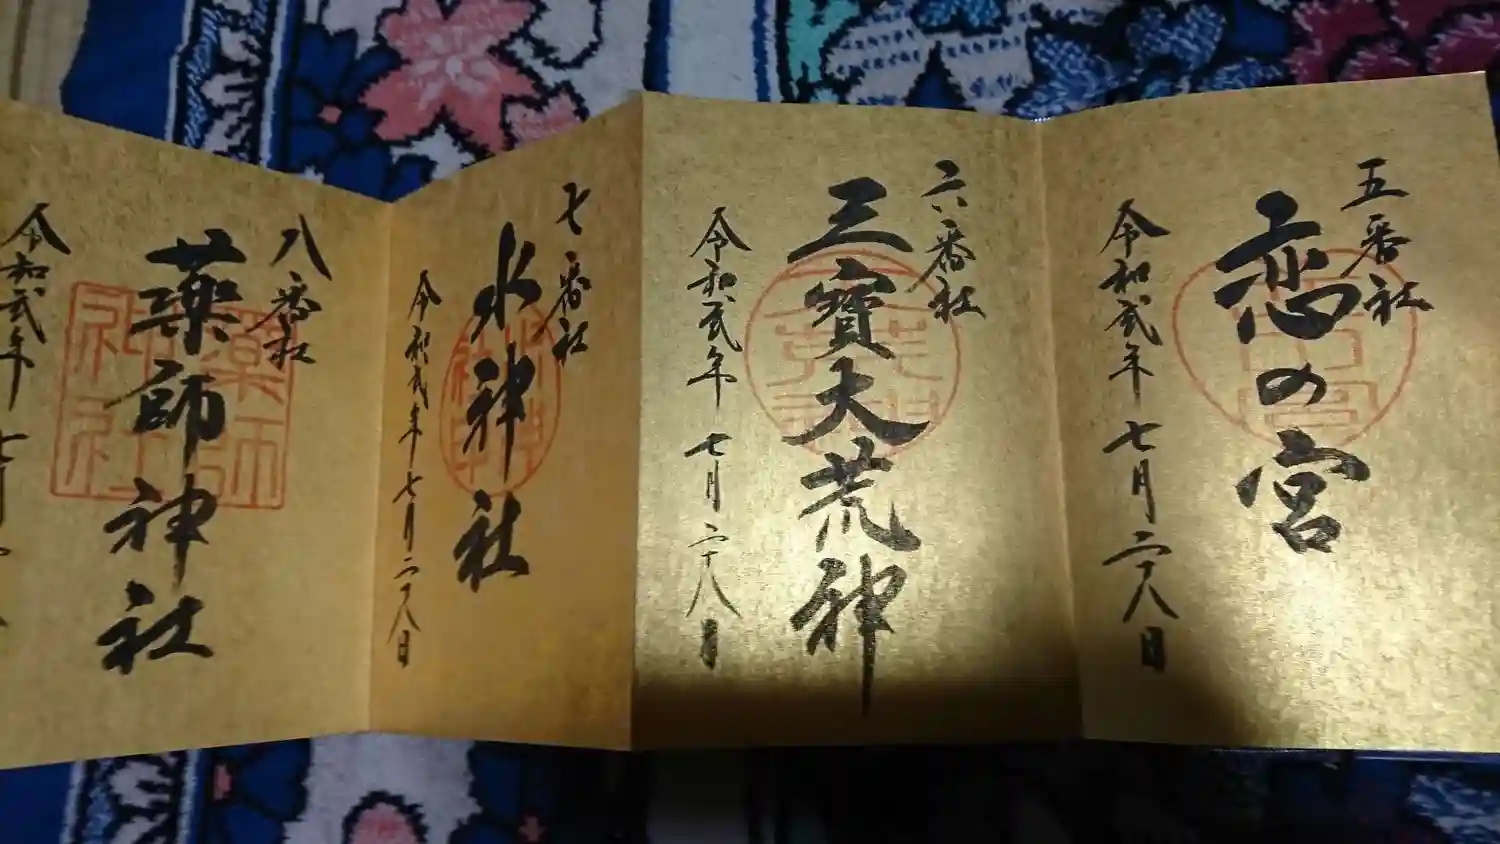 五番社
恋の宮
令和弐年七月二十八日
六番社
三寶大荒神
令和弐年七月二十八日
七番社
水神社
令和弐年七月二十八日
八番社
薬師神社
令和弐年七月